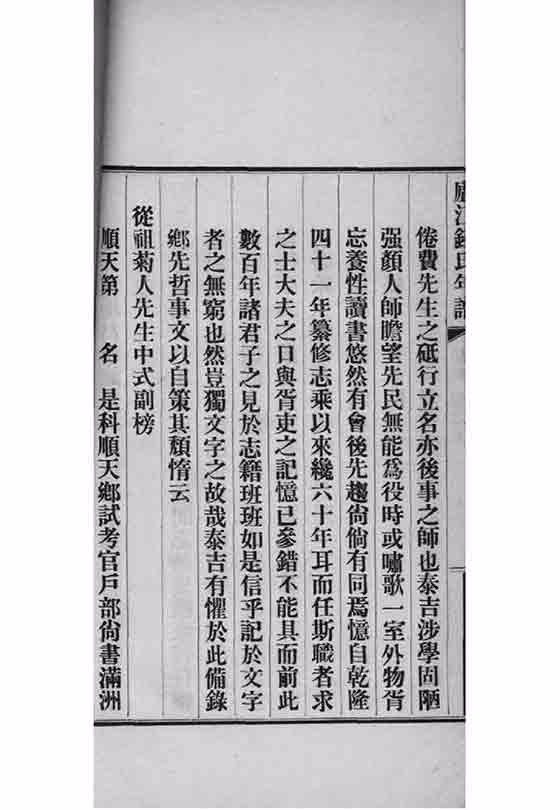 廬江錢氏年譜
倦費先生之砥行立名亦後事之師也泰吉涉學固陋
强顏人師瞻望先民無能爲役時或嘯歌一室外物胥
忘養性讀書悠然有會後先趨尙倘有同焉憶自乾隆
四十一年纂修志乘以來纔六十年耳而任斯職者求
之士大夫之口與胥吏之記憶已參錯不能具而前此
數百年諸君子之見於志籍班班如是信乎記於文字
者之無窮也然豈獨文字之故哉泰吉有懼於此備錄
鄕先哲事文以自策其頹惰云
從祖菊人先生中式副榜
順天第　名　是科順天鄕試考官戶部尙書滿洲